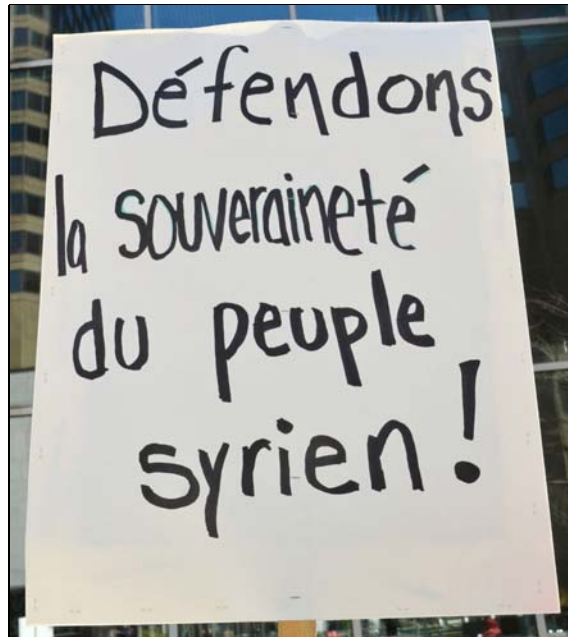 Défendons
la souveraineté
du peuple
syrien !